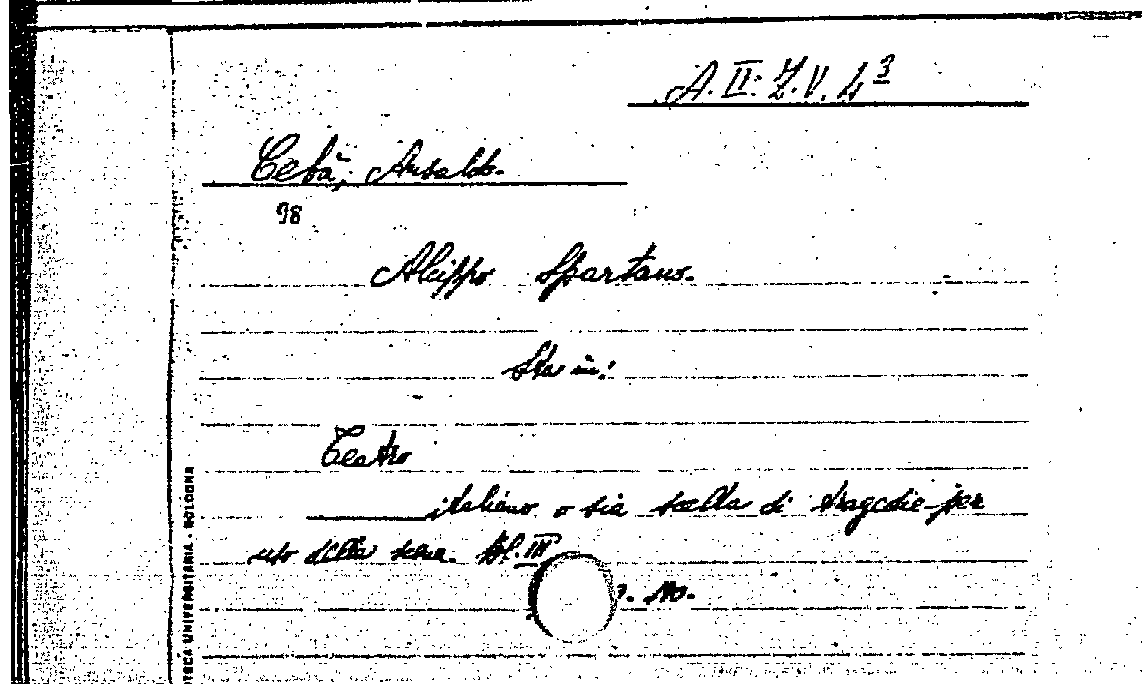 A. II: Z. V. 4 3
Cebà, Ansaldo.
98
Alcippo Spartano.
Sta in:
Teatro
italiano o sia scelta di tragedie per
uso della scena. Vol. III
TECA UNIVERSITARIA - BOLOGNA